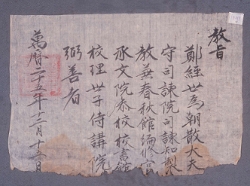 教旨
鄭經世爲朝散大夫
守司諫院司諫知製
教兼春秋館編修官
承文院校校
校理世子侍講院
弼善者
萬曆二十五年十二月十